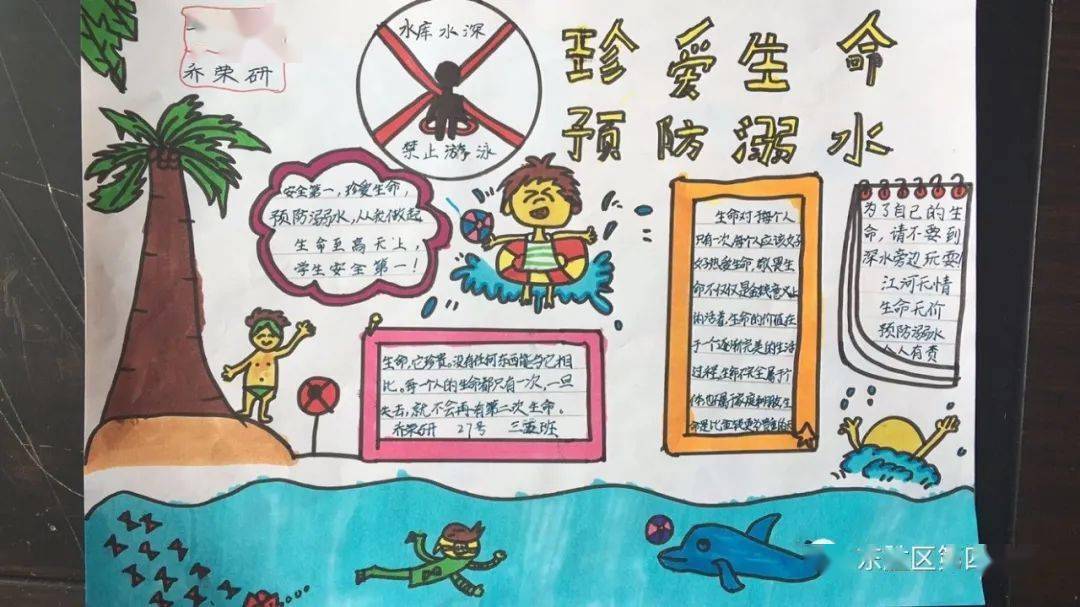 乔荣研
水库水深
禁止游泳
珍爱生命
预防溺水
安全第一,珍爱生命,
预防溺水,从我做起
生命至高无上,
学生安全第一!
生命对每个人
只有一次,每个人应该好
好热爱生命,敬畏生
命不仅仅是金钱意义上
的活着,生命的价值在
于一个逐渐完美的生活
过程,生命不完全属于个
体也属于家庭和
命是比金钱更
为了自己的生
命,请不要到
深水旁边玩耍!
江河无情
生命无价
预防溺水
人人有责
生命,它珍贵。没有任何东西能与它相
比。每个人的生命都只有一次,一旦
失去,就不会再有第二次生命。
乔荣研 27号 三五班
区第四